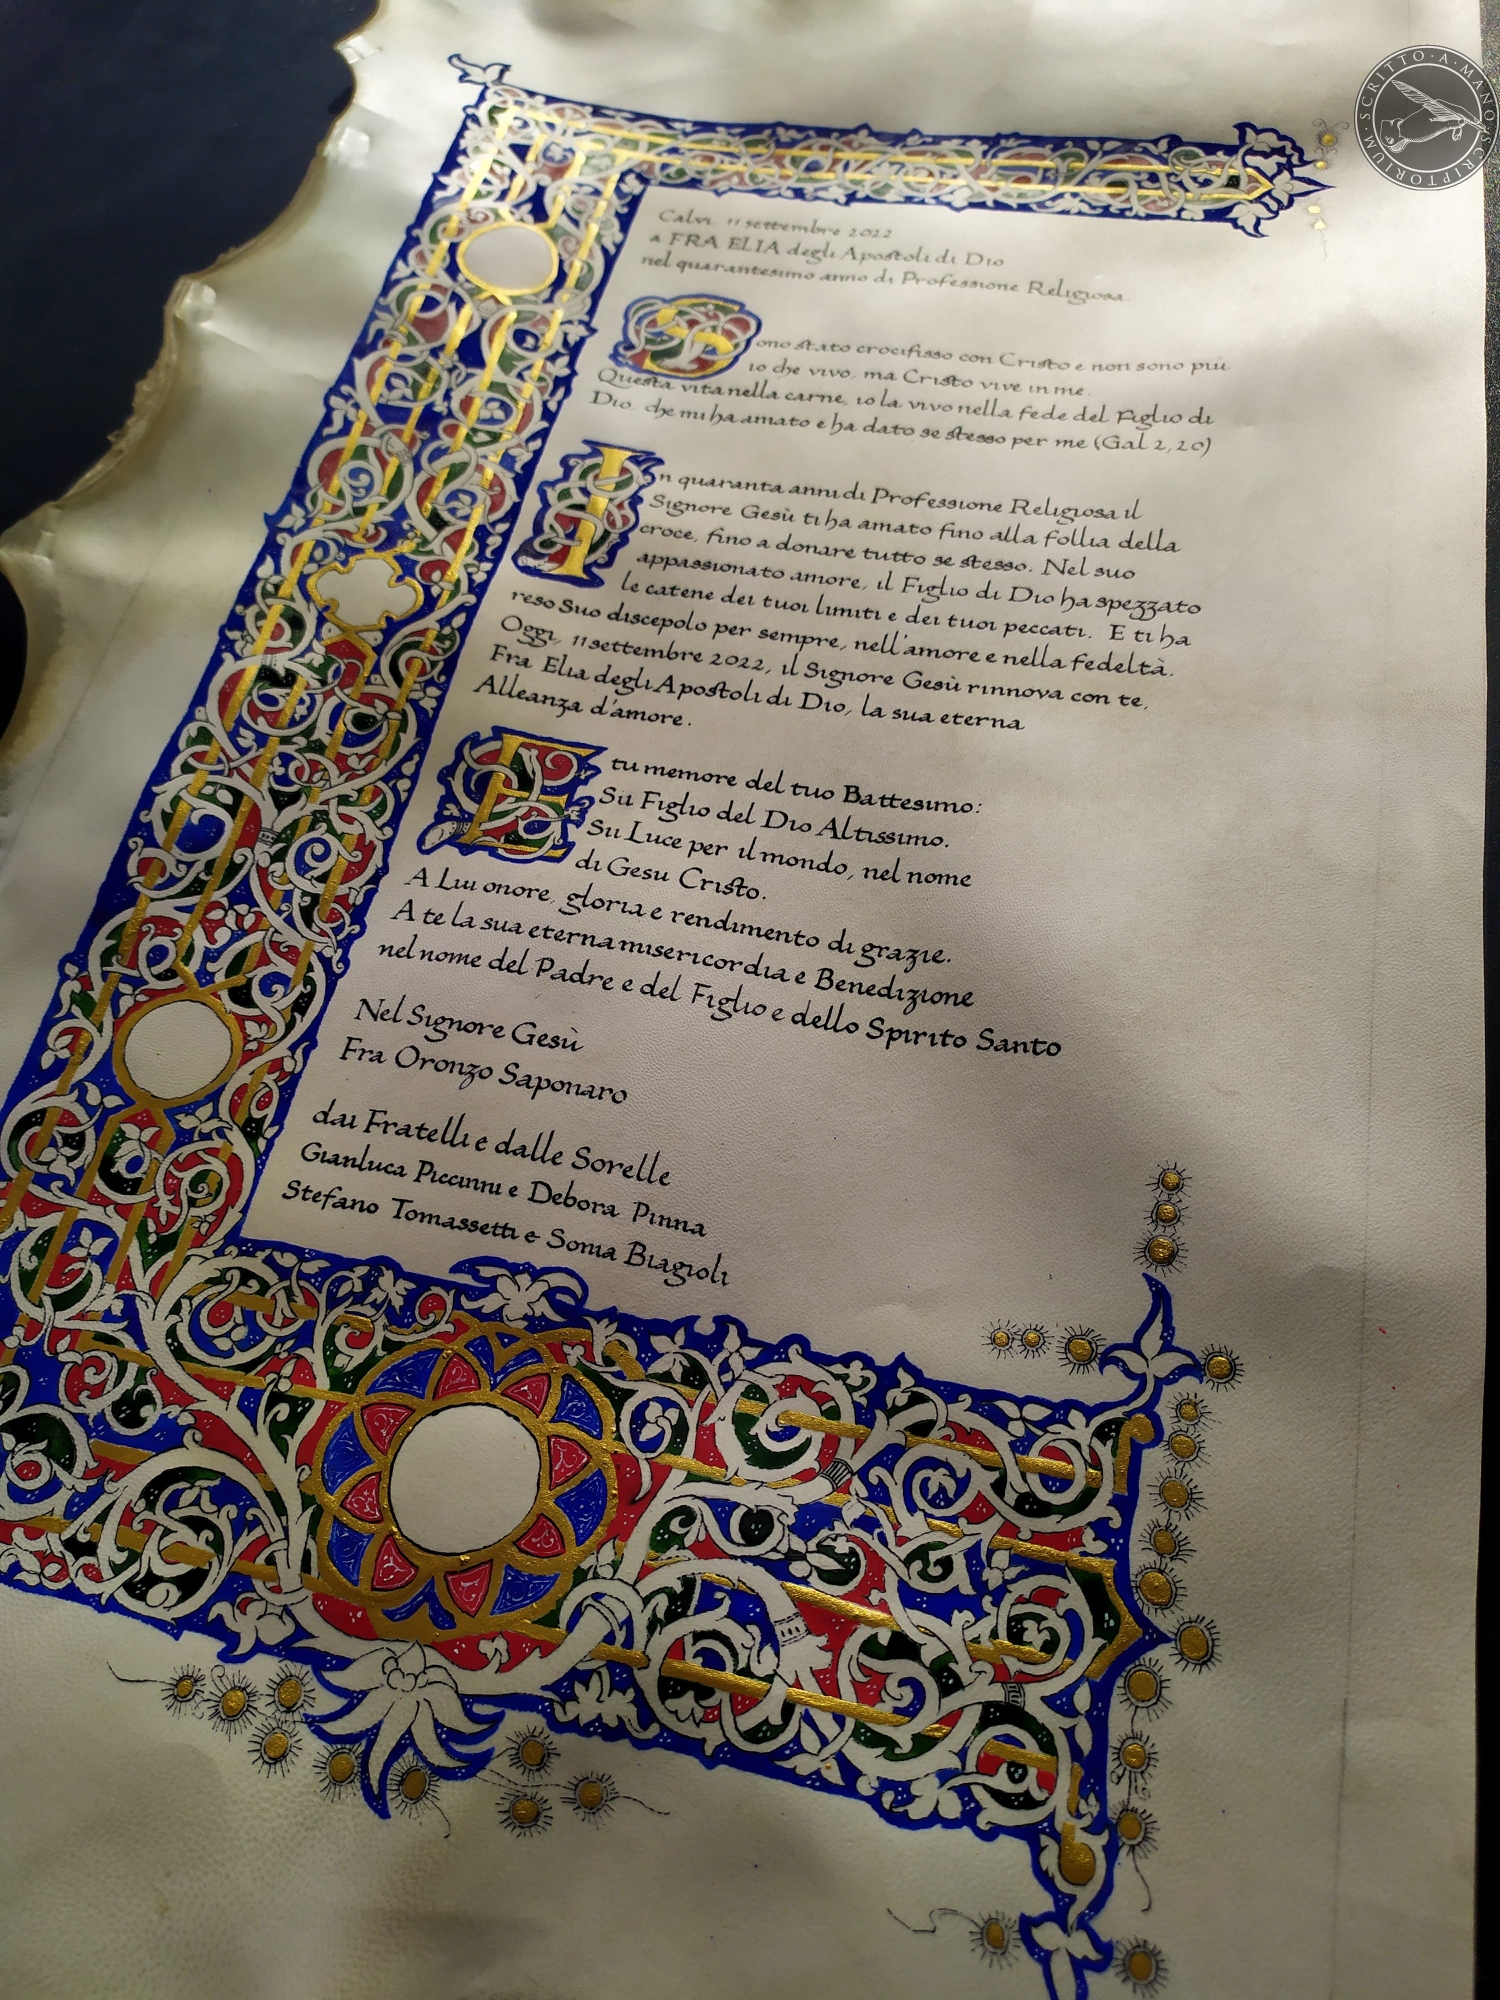 SCRITTO·A·MANO·SCRIPTORIUM·
Calvi, 11 settembre 2022
a FRA ELIA degli Apostoli di Dio
nel quarantesimo anno di Professione Religiosa
Sono stato crocifisso con Cristo e non sono più
io che vivo, ma Cristo vive in me.
Questa vita nella carne, io la vivo nella fede del Figlio di
Dio, che mi ha amato e ha dato se stesso per me (Gal 2,20)
In quaranta anni di Professione Religiosa il
Signore Gesù ti ha amato fino alla follia della
croce, fino a donare tutto se stesso. Nel suo
appassionato amore, il Figlio di Dio ha spezzato
le catene dei tuoi limiti e dei tuoi peccati. E ti ha
reso Suo discepolo per sempre, nell'amore e nella fedeltà.
Oggi, 11 settembre 2022, il Signore Gesù rinnova con te,
Fra Elia degli Apostoli di Dio, la sua eterna
Alleanza d'amore.
E tu memore del tuo Battesimo:
Sii Figlio del Dio Altissimo.
Sii Luce per il mondo, nel nome
di Gesu Cristo.
A Lui onore, gloria e rendimento di grazie.
A te la sua eterna misericordia e Benedizione
nel nome del Padre e del Figlio e dello Spirito Santo
Nel Signore Gesù
Fra Oronzo Saponaro
dai Fratelli e dalle Sorelle
Gianluca Piccinni e Debora Pinna
Stefano Tomassetti e Sonia Biagioli